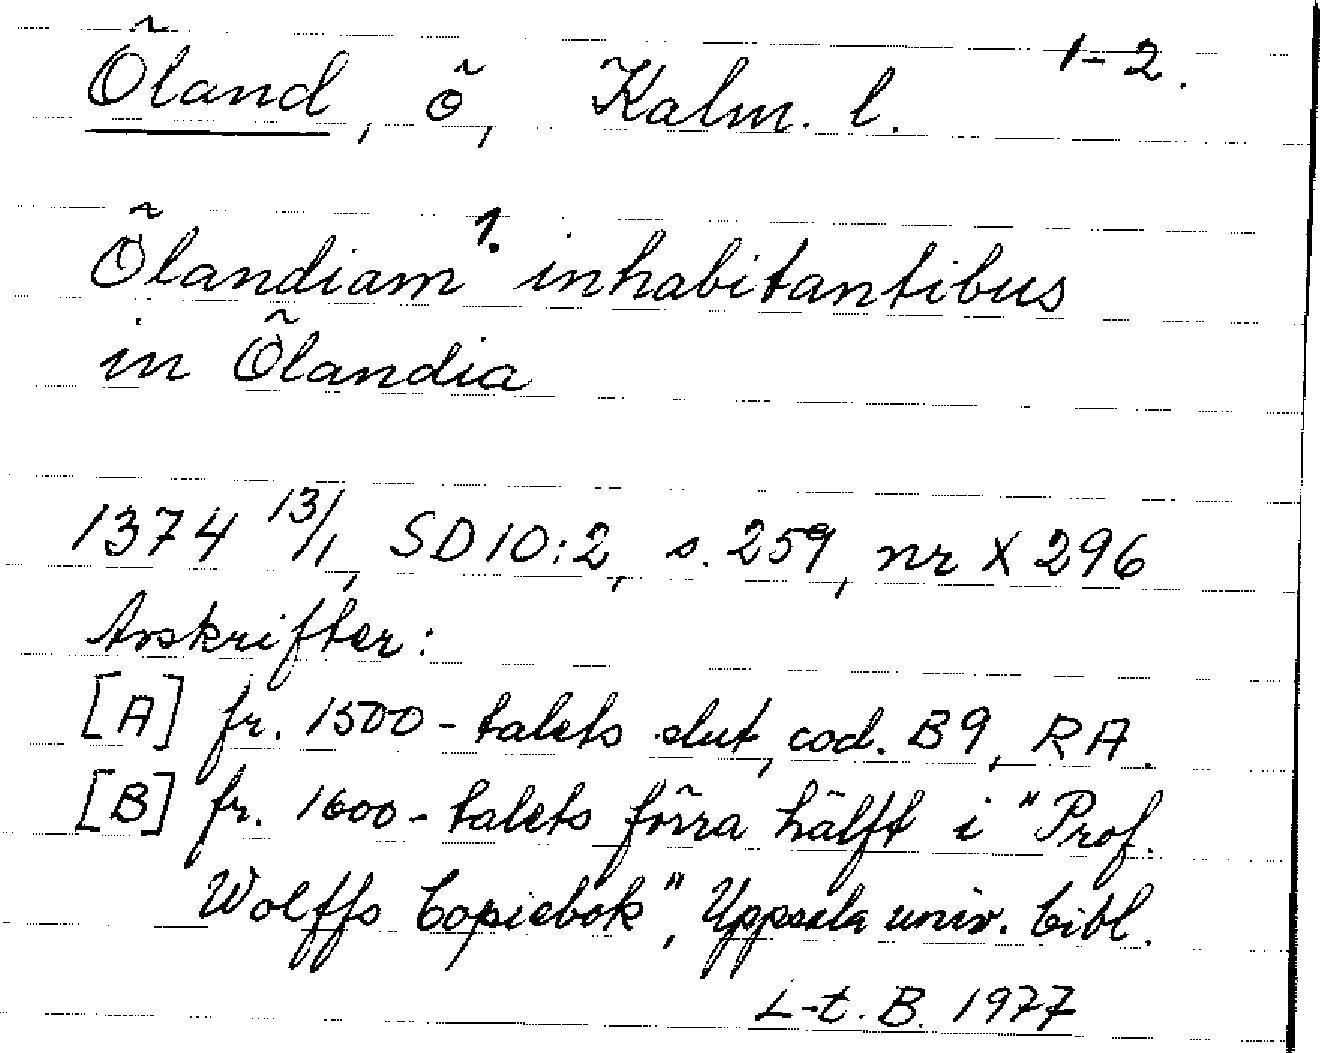 Öland, ö, Kalm. l. 1-2.
Ölandiam 1. inhabitantibus
in Ölandia
1374 13/1, SD 10:2, s. 259, nr X 296
Avskrifter:
[A] fr. 1500-talets slut, cod. B9, RA.
[B] fr. 1600-talets förra hälft i "Prof.
Wolffs Copiebok", Uppsala univ. bibl.
L-t. B. 1977